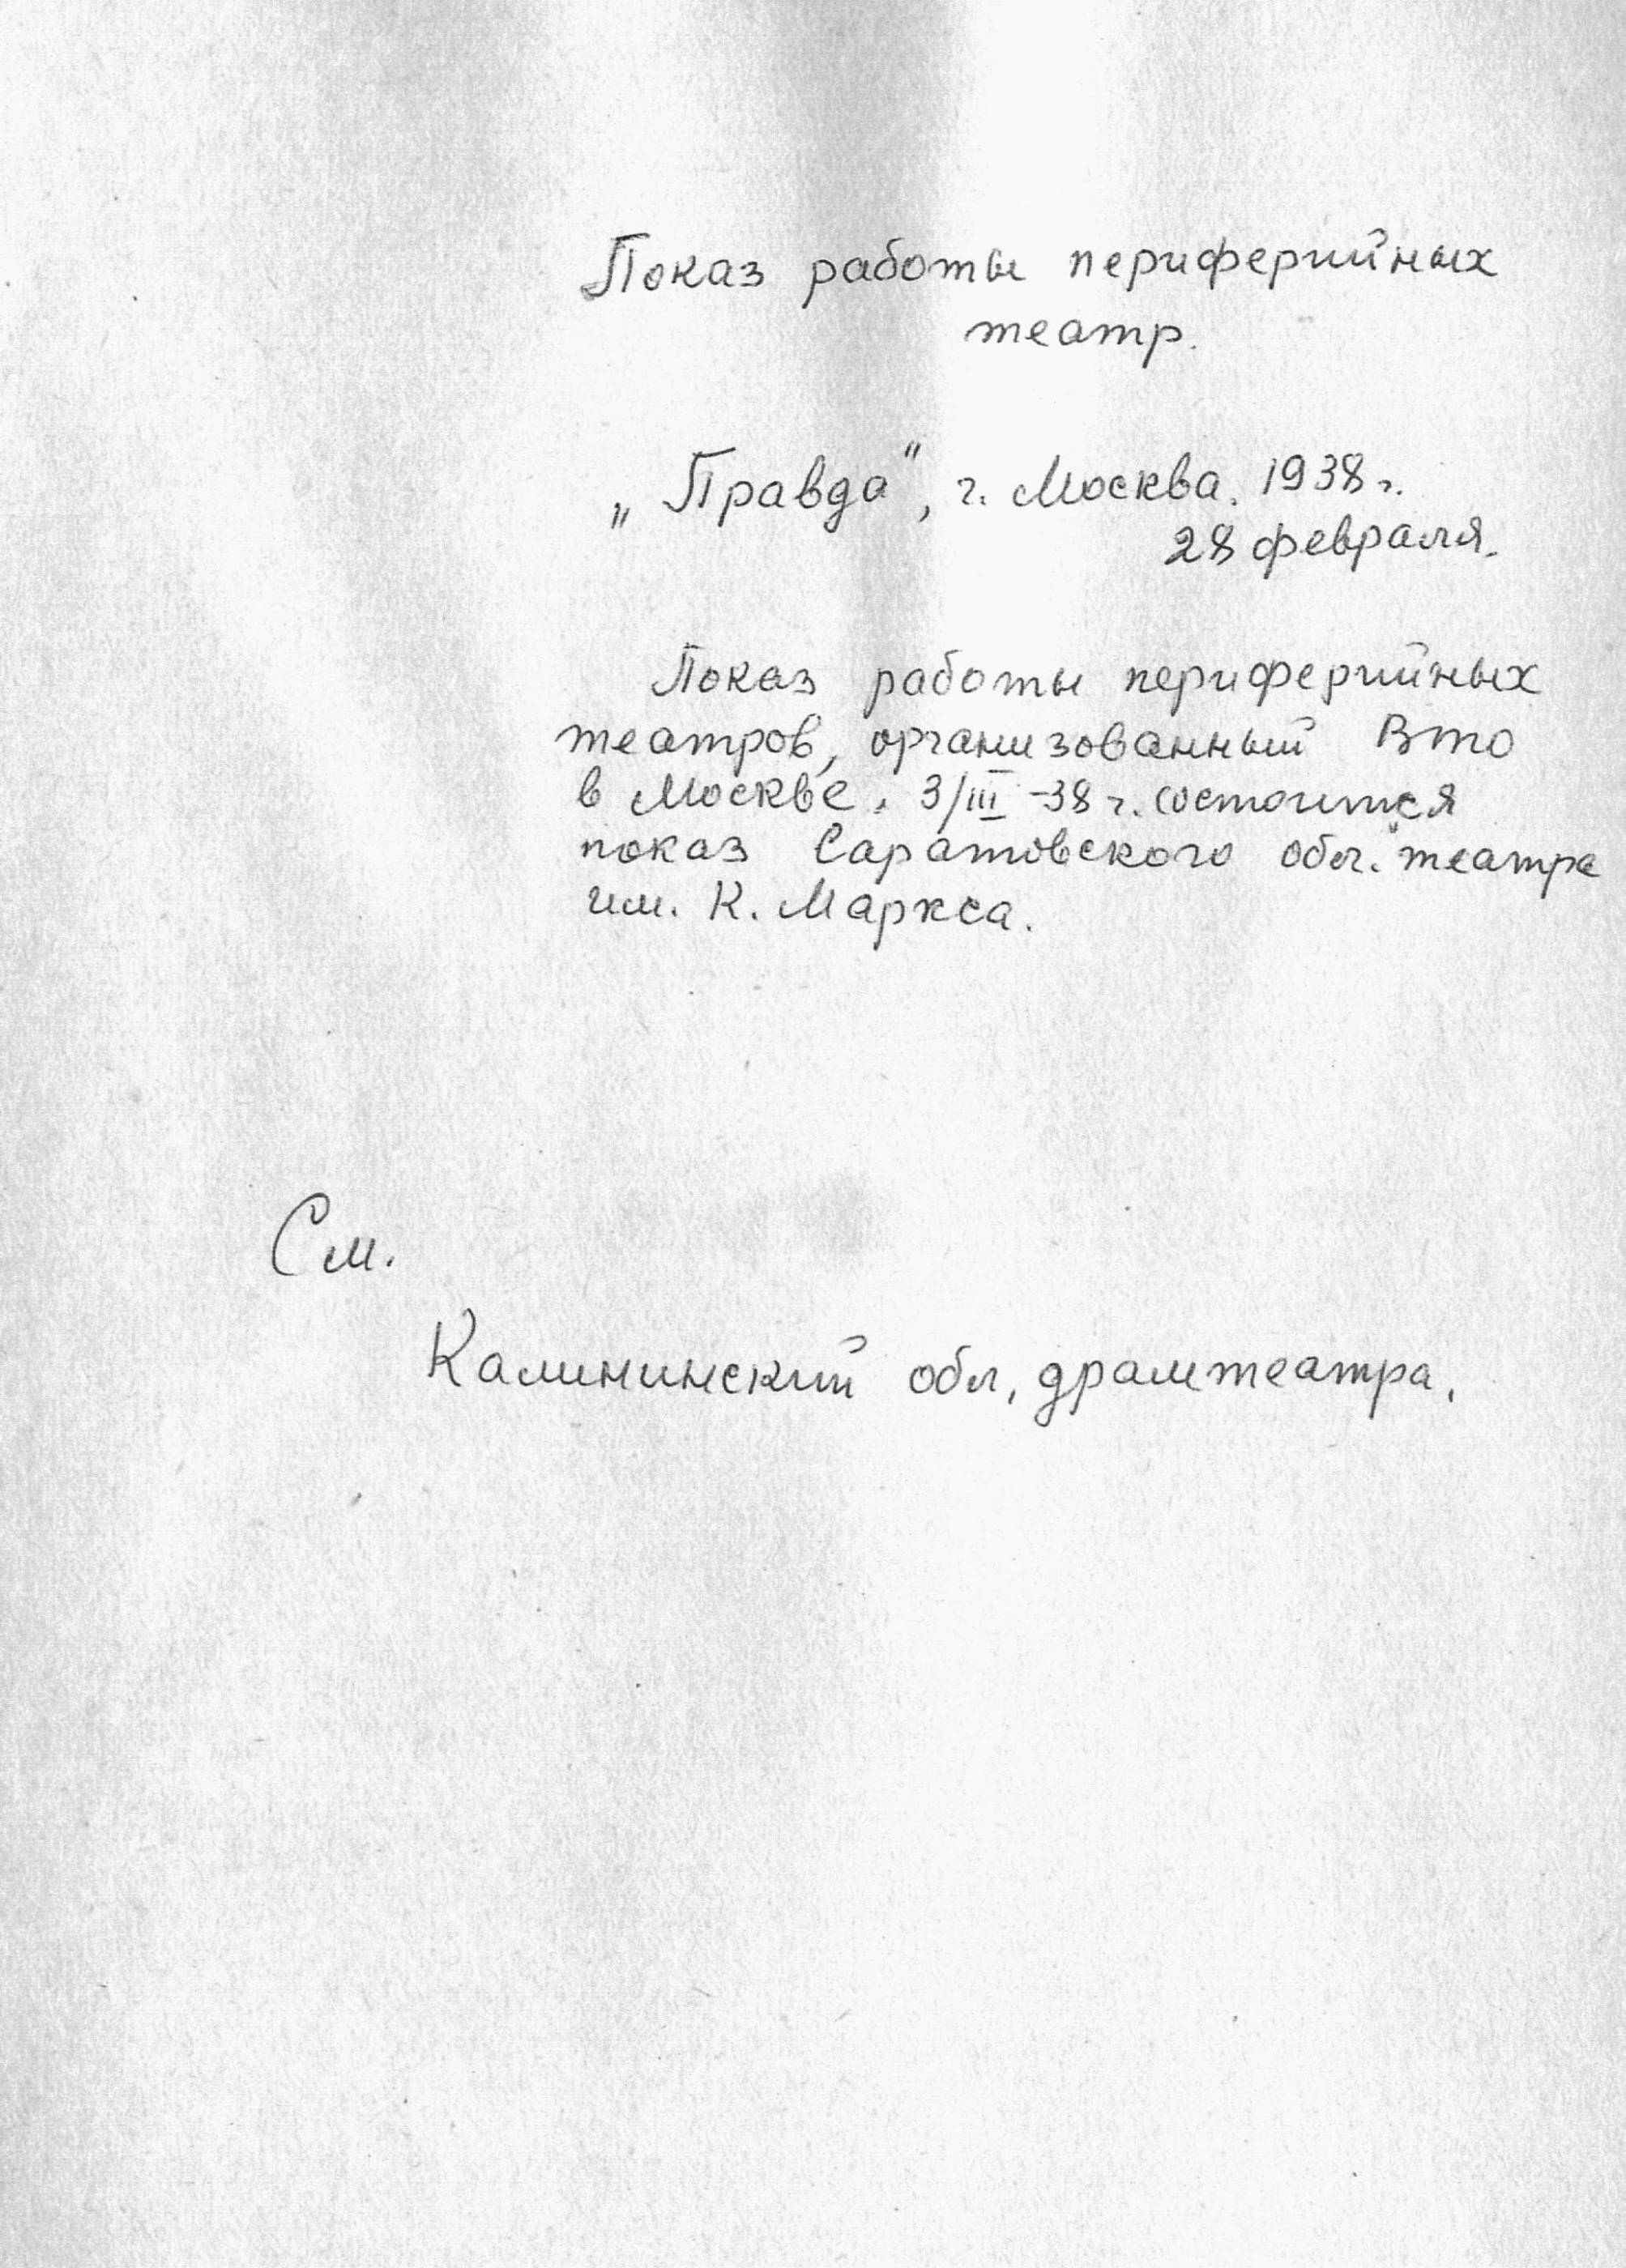 Показ работы периферийных
театр.
„Правда", г. Москва. 1938 г.
28 февраля.
Показ работы периферийных
театров, организованный ВТО
в Москве. 3/III-38 г. состоится
показ Саратовского обл. театра
им. К. Маркса.
См.
Калининский обл. драмтеатра.